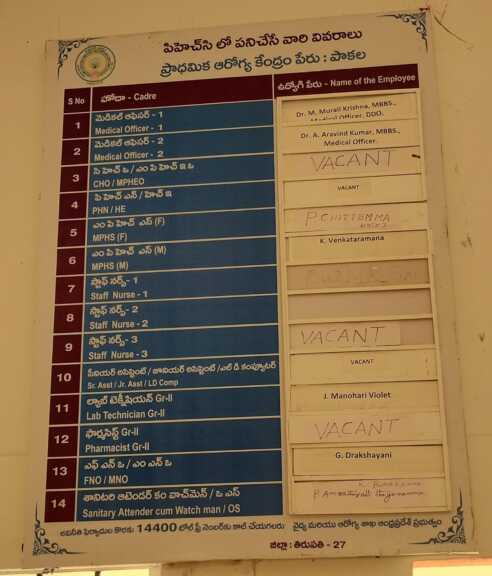 పిహెచ్‌సి లో పనిచేసే వారి వివరాలు
ప్రాధమిక ఆరోగ్య కేంద్రం పేరు : పాకల
S No హోదా - Cadre ఉద్యోగి పేరు - Name of the Employee
1 మెడికల్ ఆఫీసర్ - 1
Medical Officer - 1
Dr. M. Murali Krishna, MBBS.,
Officer, DDO.
2 మెడికల్ ఆఫీసర్ - 2
Medical Officer - 2
Dr. A. Aravind Kumar, MBBS.,
Medical Officer
3 సి హెచ్ ఒ / ఎం పి హెచ్ ఇ ఒ
CHO / MPHEO
VACANT
4 పి హెచ్ ఎన్ / హెచ్ ఇ
PHN / HE
VACANT
5 ఎం పి హెచ్ ఎస్ (F)
MPHS (F)
P. CHITTEMMA
6 ఎం పి హెచ్ ఎస్ (M)
MPHS (M)
K. Venkataramana
7 స్టాఫ్ నర్స్ - 1
Staff Nurse - 1
8 స్టాఫ్ నర్స్ - 2
Staff Nurse - 2
9 స్టాఫ్ నర్స్ - 3
Staff Nurse - 3
VACANT
10 సీనియర్ అసిస్టెంట్ / జూనియర్ అసిస్టెంట్ /ఎల్ డి కంప్యూటర్
Sr. Asst / Jr. Asst / LD Comp
VACANT
11 ల్యాబ్ టెక్నీషియన్ Gr-II
Lab Technician Gr-II
J. Manohari Violet
12 ఫార్మసిస్ట్ Gr-II
Pharmacist Gr-II
VACANT
13 ఎఫ్ ఎన్ ఒ / ఎం ఎన్ ఒ
FNO / MNO
G. Drakshayani
14 శానిటరి అటెండర్ కం వాచ్‌మెన్ / ఒ ఎస్
Sanitary Attender cum Watch man / OS
అవినీతి ఫిర్యాదుల కొరకు 14400 టోల్ ఫ్రీ నెంబర్‌కు కాల్ చేయగలరు వైద్య మరియు ఆరోగ్య శాఖ ఆంధ్రప్రదేశ్ ప్రభుత్వం
జిల్లా : తిరుపతి - 27